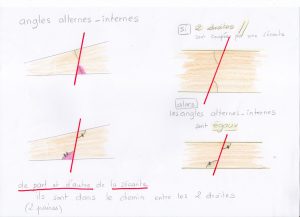 angles alternes-internes
si 2 droites //
sont coupées par une sécante
alors
les angles alternes-internes
sont égaux
de part et d'autre de la sécante
ils sont dans le chemin entre les 2 droites
(2 paires)